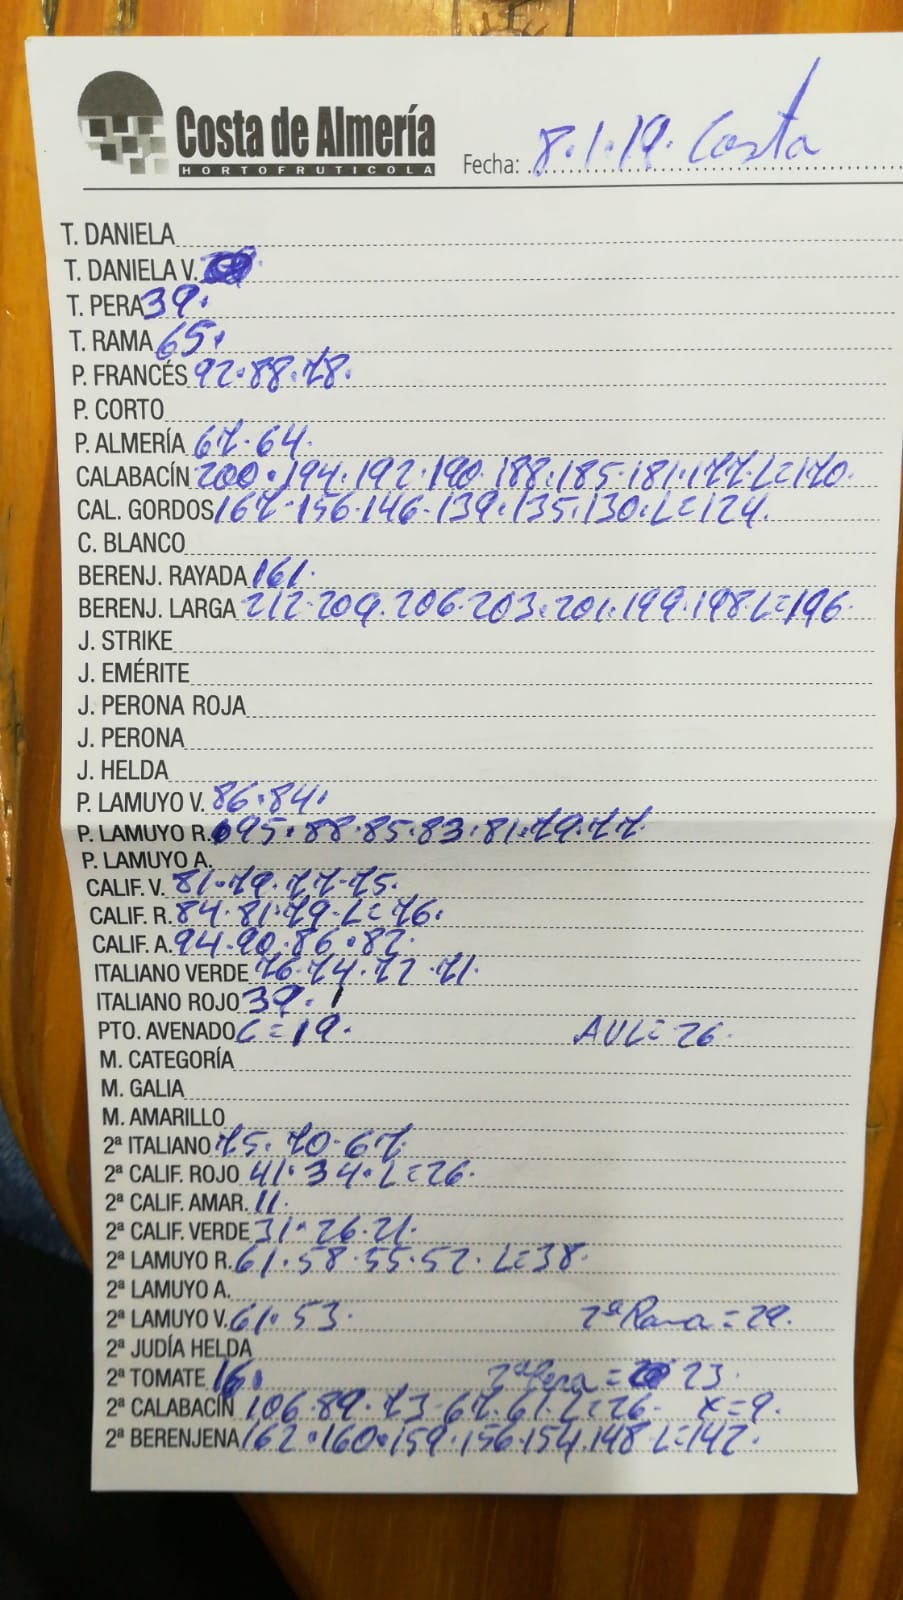 Costa de Almería
HORTOFRUTICOLA
Fecha: 8.1.19. Costa
T. DANIELA
T. DANIELA V.
T. PERA 39.
T. RAMA 65.
P. FRANCÉS 92.88.78.
P. CORTO
P. ALMERÍA 67.64.
CALABACÍN 200.194.192.190.188.185.181.177.L=170.
CAL. GORDOS 167.156.146.139.135.130.L=124.
C. BLANCO
BERENJ. RAYADA 161.
BERENJ. LARGA 212.209.206.203.201.199.198.L=196.
J. STRIKE
J. EMÉRITE
J. PERONA ROJA
J. PERONA
J. HELDA
P. LAMUYO V. 86.84.
P. LAMUYO R. 95.88.85.83.81.79.77.
P. LAMUYO A.
CALIF. V. 81.79.77.75.
CALIF. R. 84.81.79.L=76.
CALIF. A. 94.90.86.82.
ITALIANO VERDE 76.74.72.71.
ITALIANO ROJO 39.
PTO. AVENADO C=19. AVL=26.
M. CATEGORÍA
M. GALIA
M. AMARILLO
2ª ITALIANO 75.70.67.
2ª CALIF. ROJO 41.34.L=26.
2ª CALIF. AMAR. 11.
2ª CALIF. VERDE 31.26.21.
2ª LAMUYO R. 61.58.55.52.L=38.
2ª LAMUYO A.
2ª LAMUYO V. 61.53. 2ª Rama=29.
2ª JUDÍA HELDA
2ª TOMATE 16. 2ª Pera= 23.
2ª CALABACÍN 106.89.73.67.61.L=26. X=9.
2ª BERENJENA 162.160.159.156.154.148.L=142.